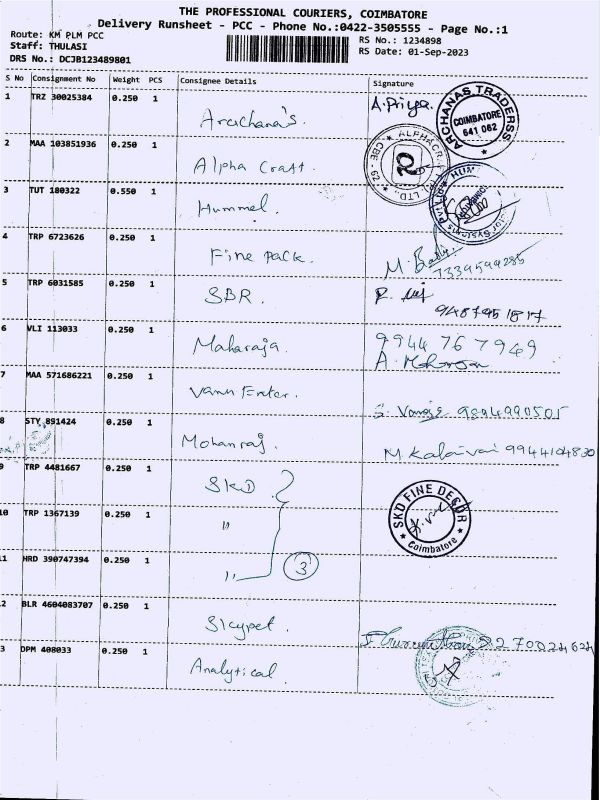 THE PROFESSIONAL COURIERS, COIMBATORE
Delivery Runsheet - PCC - Phone No.:0422-3505555 - Page No.:1
Route: KM PLM PCC
RS No.: 1234898
Staff: THULASI
RS Date: 01-Sep-2023
DRS No.: DCJB123489801
S No Consignment No Weight PCS Consignee Details Signature
1 TRZ 30025384 0.250 1 Archana's A.Priya.
ARCHANAS TRADERSS COIMBATORE 641 062
2 MAA 103851936 0.250 1 Alpha Craft.
3 TUT 180322 0.550 1 Hummel.
4 TRP 6723626 0.250 1 Fine pack. M.
7339599285
5 TRP 6031585 0.250 1 SBR.
9487951817
6 VLI 113033 0.250 1 Maharaja. 9944767949
7 MAA 571686221 0.250 1
9894990505
8 STY 891424 0.250 1 Mohanraj. M. Kalaivani 9944104830
9 TRP 4481667 0.250 1 SKD
10 TRP 1367139 0.250 1 "
SKD FINE DECOR Coimbatore
11 HRD 390747394 0.250 1 " 3
2 BLR 4604083707 0.250 1 Skypet.
3 DPM 408033 0.250 1 Analytical